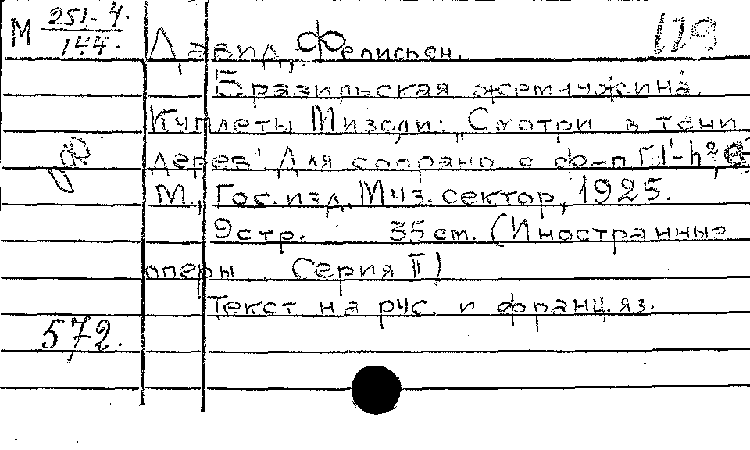 М 251-4. 129
144.
Давид, Фелисьен.
Бразильская жемчужина.
Куплеты Мизели: „Смотри в тени
дерев". Для сопрано с ф-п
М., Гос. изд. Муз. сектор, 1925.
9 стр. 35 ст. (Иностранные
оперы. Серия II)
Текст на рус. и франц. яз.
572.